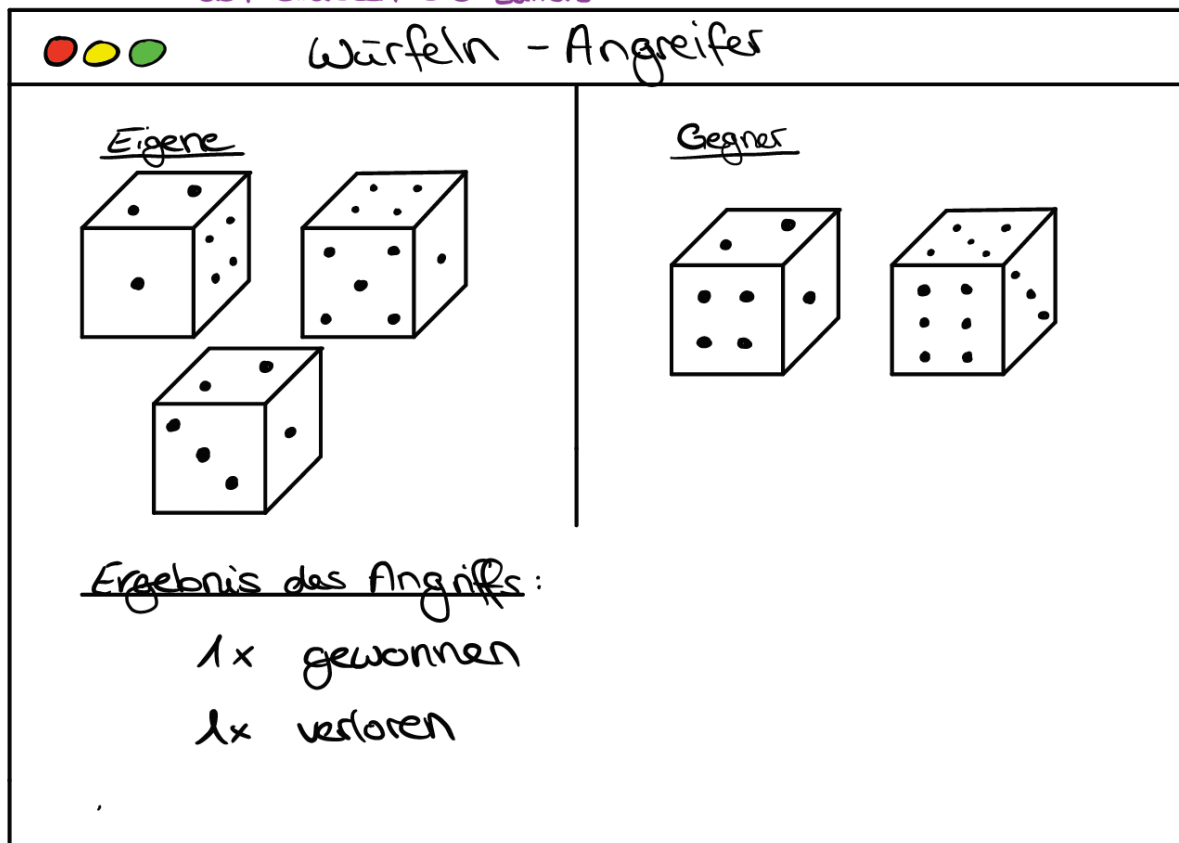 Würfeln - Angreifer
Eigene
Gegner
Ergebnis des Angriffs:
1x gewonnen
1x verloren